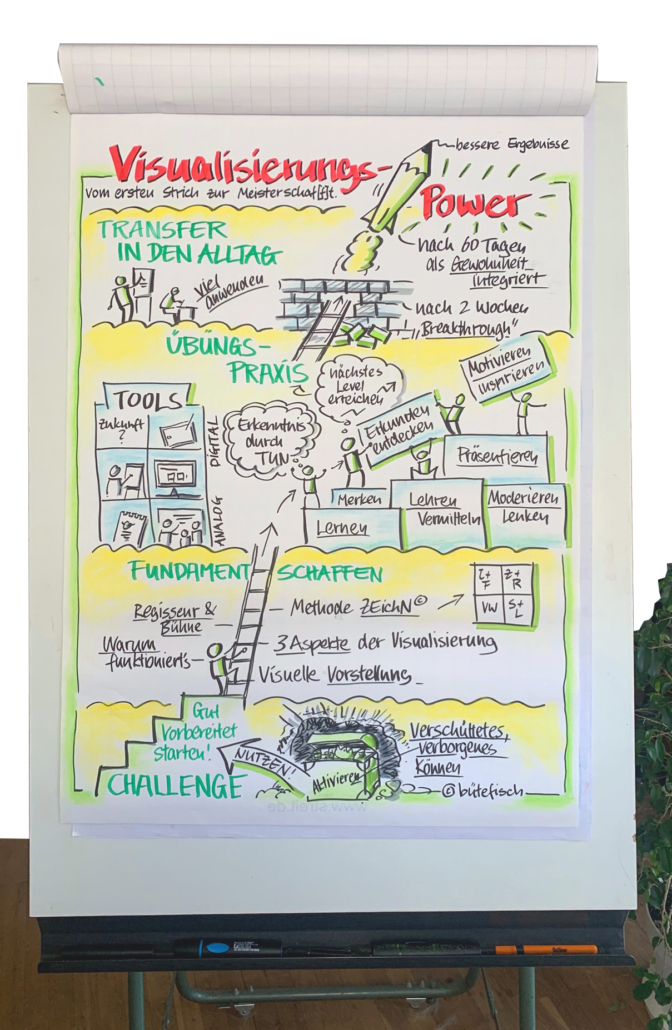 bessere Ergebnisse
Visualisierungs-
Power
vom ersten Strich zur Meisterschaffft.
TRANSFER
IN DEN ALLTAG
viel
anwenden
nach 60 Tagen
als Gewohnheit
integriert
nach 2 Wochen
"Breakthrough"
ÜBUNGS-
PRAXIS
nächstes
Level
erreichen
Motivieren
inspirieren
TOOLS
Zukunft
?
DIGITAL
ANALOG
Erkenntnis
durch
TUN
Erkunden
entdecken
Präsentieren
Merken
Lernen
Lehren
Vermitteln
Moderieren
Lenken
FUNDAMENT SCHAFFEN
Regisseur &
Bühne
Methode ZEichN©
Z+
R
VW
S+
L
Warum
funktioniert's
3 Aspekte der Visualisierung
Visuelle Vorstellung
Gut
Vorbereitet
starten!
CHALLENGE
NUTZEN!
Aktivieren
Verschüttetes,
verborgenes
Können
© bütefisch
www.streit.de